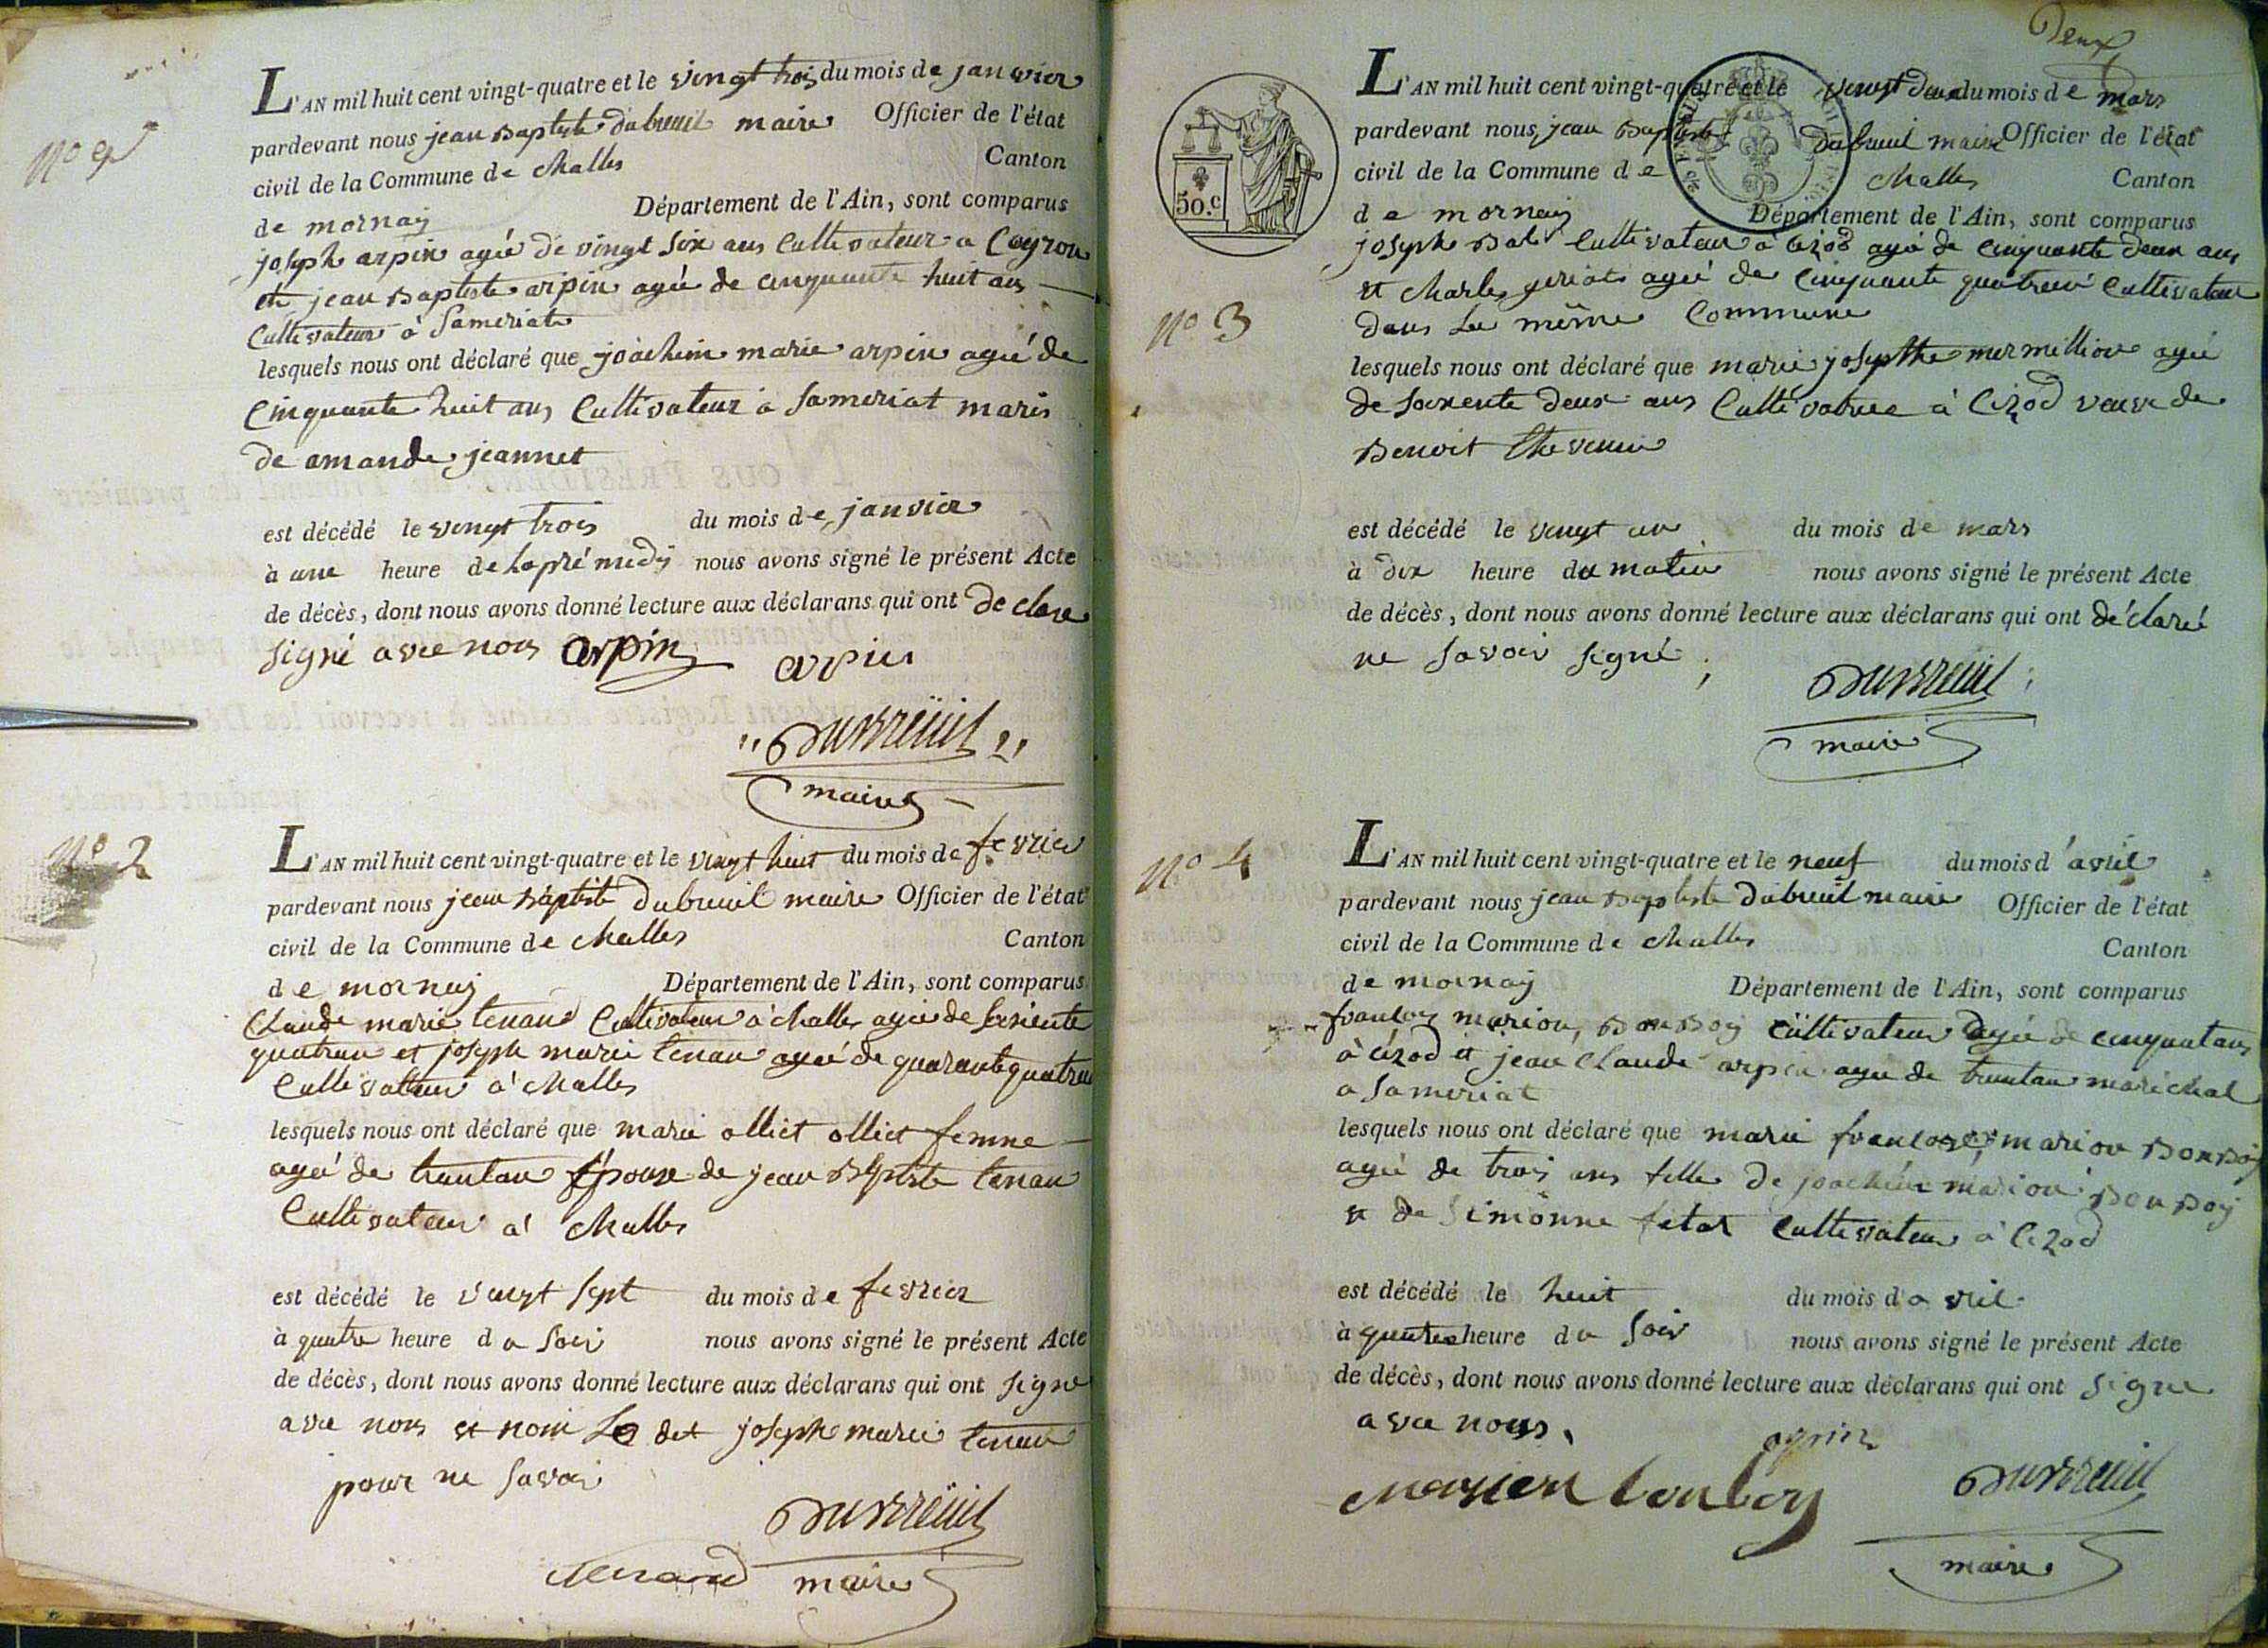 L'AN mil huit cent vingt-quatre et le vingt trois du mois de janvier
pardevant nous jean Baptiste dubreuil maire Officier de l'état
civil de la Commune de challes Canton
de mornay Département de l'Ain, sont comparus
joseph arpin agé de vingt six ans Cultivateur a
et jean Baptiste arpin agé de cinquante huit ans
Cultivateur à Sameriat
lesquels nous ont déclaré que joàchim marie arpin agé de
Cinquante huit ans Cultivateur à Sameriat maris
de amande jeannet
est décédé le vingt trois du mois de janvier
à une heure de laprémedy nous avons signé le présent Acte
de décès, dont nous avons donné lecture aux déclarans qui ont de clare
signé avec nous arpin arpin
Dubreüil
maire
N° 2
L'AN mil huit cent vingt-quatre et le vingt huit du mois de fevrier
pardevant nous jean Baptiste dubreuil maire Officier de l'état
civil de la Commune de challes Canton
de mornay Département de l'Ain, sont comparus
Claude marie tenand Cultivateur à challes agé de Soixente
quatran et joseph marie tenan agé de quarantequatran
Cultivateur à challes
lesquels nous ont déclaré que marie olliet olliet femne
agé de trantan Épouse de jean Bptiste tenan
Cultivateur à challes
est décédé le vingt sept du mois de fevrier
à quatre heure du Soir nous avons signé le présent Acte
de décès, dont nous avons donné lecture aux déclarans qui ont signé
avec nous et nom Le dit joseph marie tenan
pour ne Savoir
Dubreüil
tenand maire
Deux
50.c
L'AN mil huit cent vingt-quatre et le vingt deux du mois de mars
pardevant nous jean Baptiste dubreuil maire Officier de l'état
civil de la Commune de challes Canton
de mornay Département de l'Ain, sont comparus
joseph Cultivateur à Cizod agé de cinquante deux ans
et charles agé de cinquante quatreans Cultivateur
dans La même Commune
N° 3
lesquels nous ont déclaré que marie josepthe mermillion agé
de Soixente deux ans Cultivatrice à Cizod veuve de
Benoit thevenin
est décédé le vingt un du mois de mars
à dix heure du matin nous avons signé le présent Acte
de décès, dont nous avons donné lecture aux déclarans qui ont déclaré
ne Savoir signé ;
Dubreüil
maire
N° 4
L'AN mil huit cent vingt-quatre et le neuf du mois d'avril
pardevant nous jean Baptiste dubreuil maire Officier de l'état
civil de la Commune de challes Canton
de mornay Département de l'Ain, sont comparus
francois marion, Bonboy Cultivateur agé de cinquantans
à Cizod et jean Claude arpin agé de trantan marechal
a Sameriat
lesquels nous ont déclaré que marie francoise marion Bonboy
agé de trois ans fille de joachim marion Bonboy
et de Simonne Cultivateur à Cizod
est décédé le huit du mois d avril
à quatre heure du Soir nous avons signé le présent Acte
de décès, dont nous avons donné lecture aux déclarans qui ont signe
avec nous.
arpin
marion bonboy Dubreüil
maire